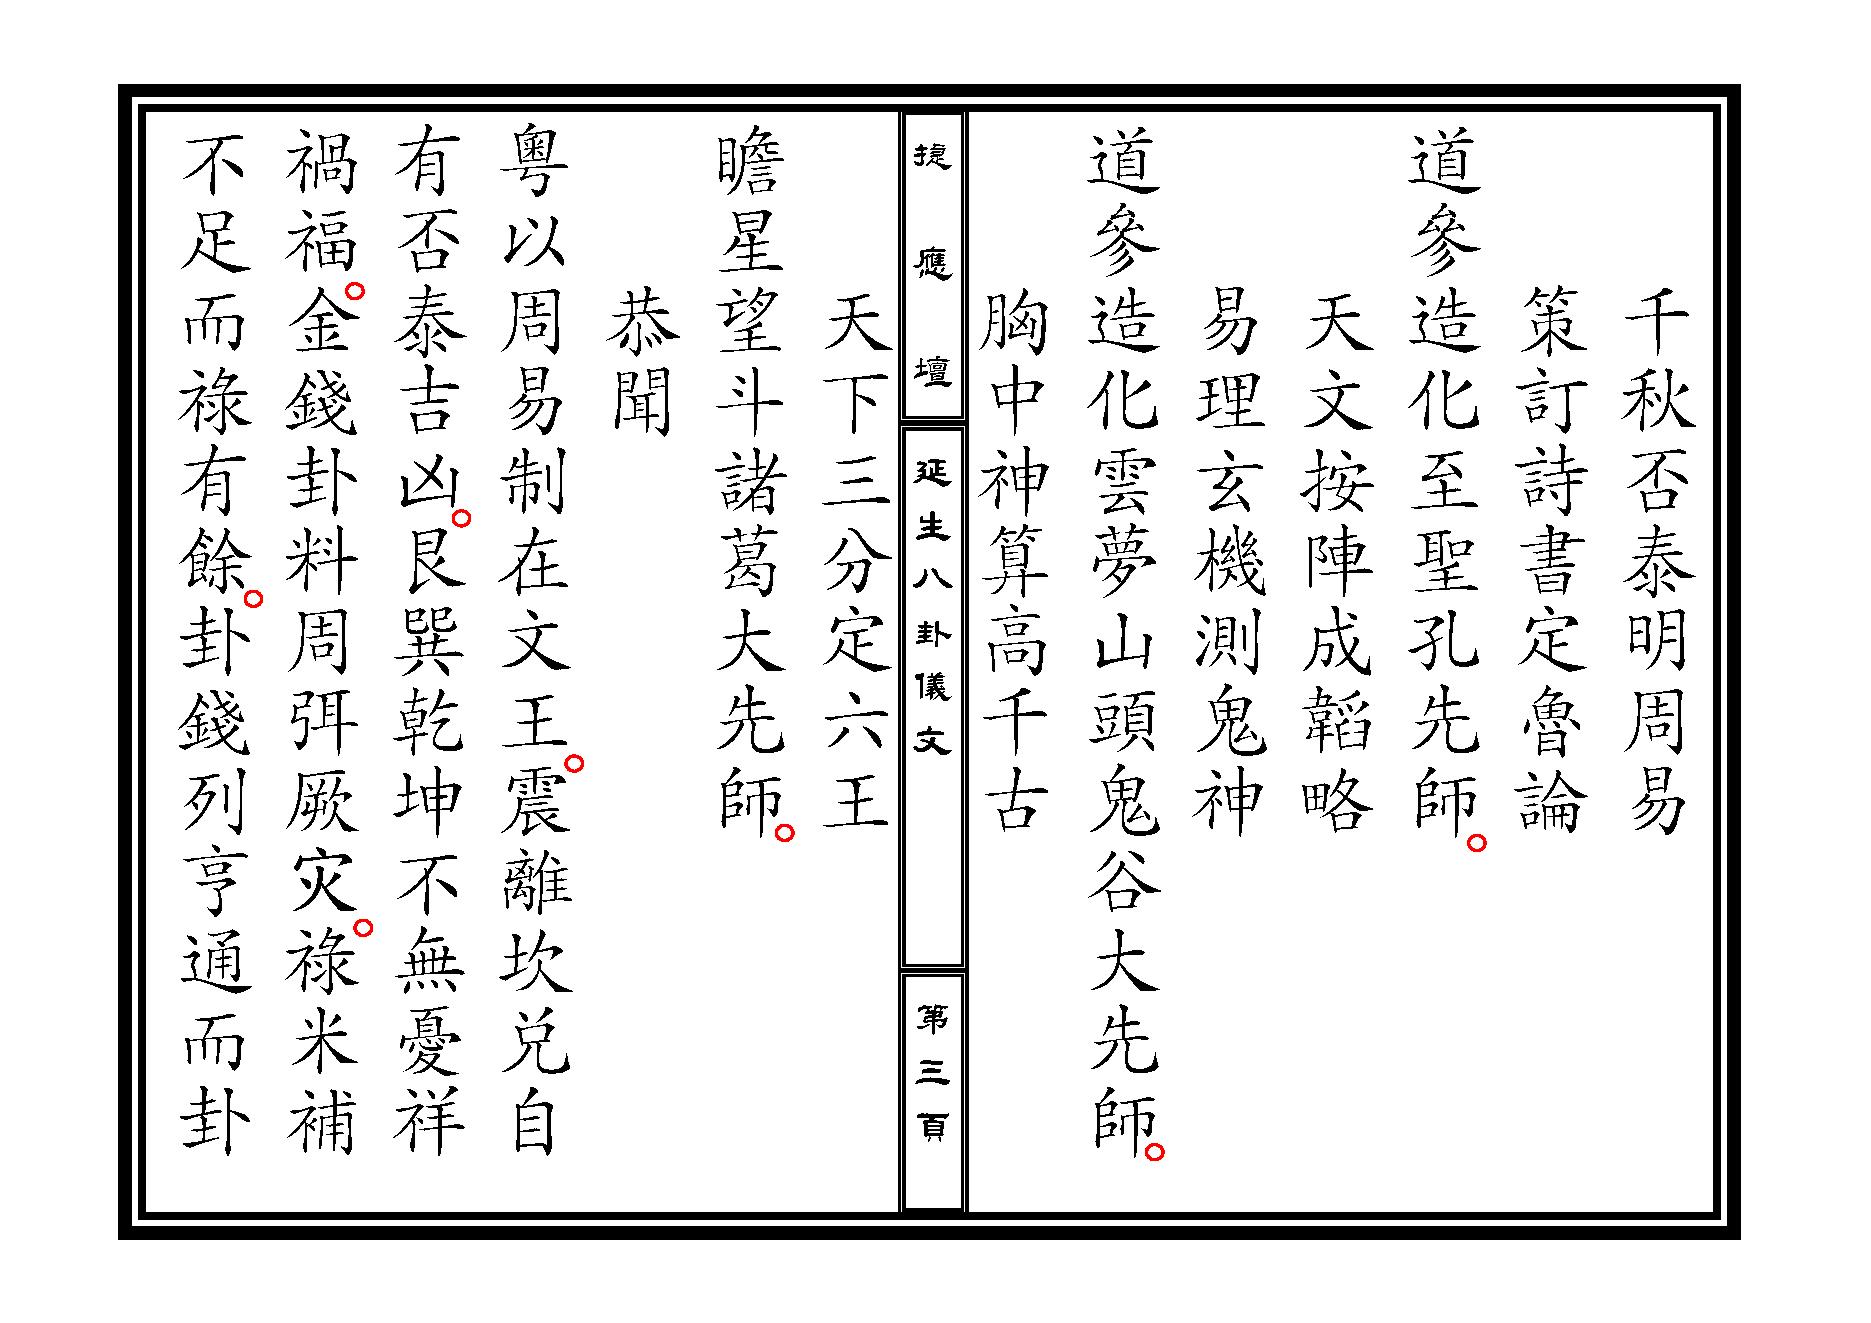 千秋否泰明周易
策訂詩書定魯論
道參造化至聖孔先師。
天文按陣成韜略
易理玄機測鬼神
道參造化雲夢山頭鬼谷大先師。
胸中神算高千古
捷應壇
延生八卦儀文
第三頁
天下三分定六王
瞻星望斗諸葛大先師。
恭聞
粵以周易制在文王。震離坎兌自
有否泰吉凶。艮巽乾坤不無憂祥
禍福。金錢卦料周弭厥灾。祿米補
不足而祿有餘。卦錢列亨通而卦